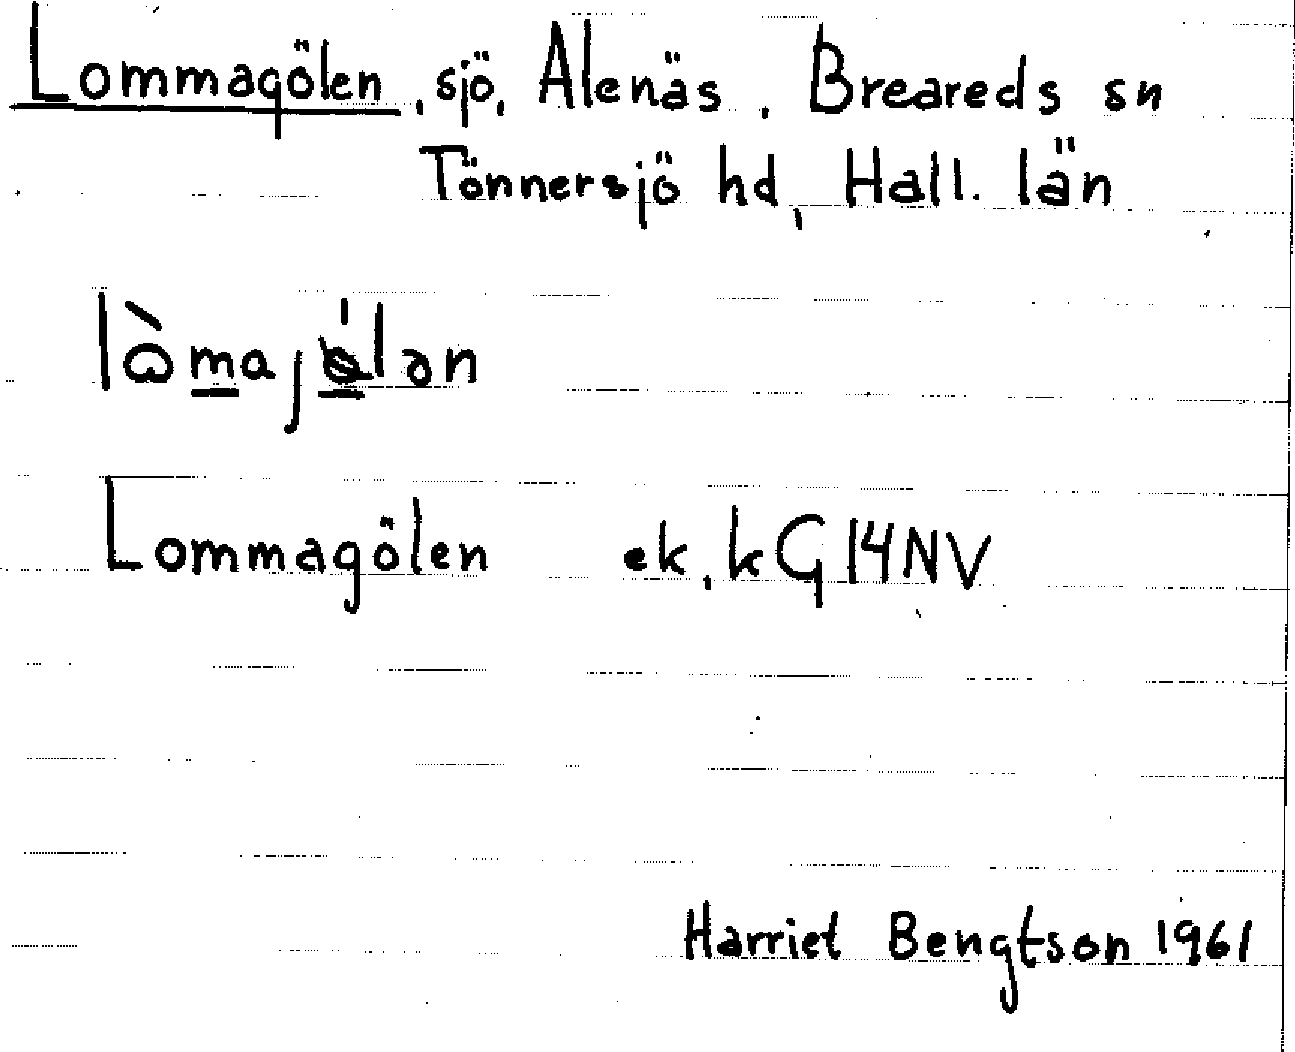 Lommagölen, sjö, Alenäs, Breareds sn
Tönnersjö hd, Hall. län
Lommagölen ek.kG14NV
Harriet Bengtson 1961